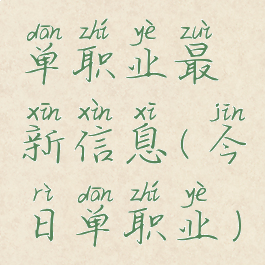 dān zhí yè zuì
单职业最
xīn xìn xī jīn
新信息(今
rì dān zhí yè
日单职业)